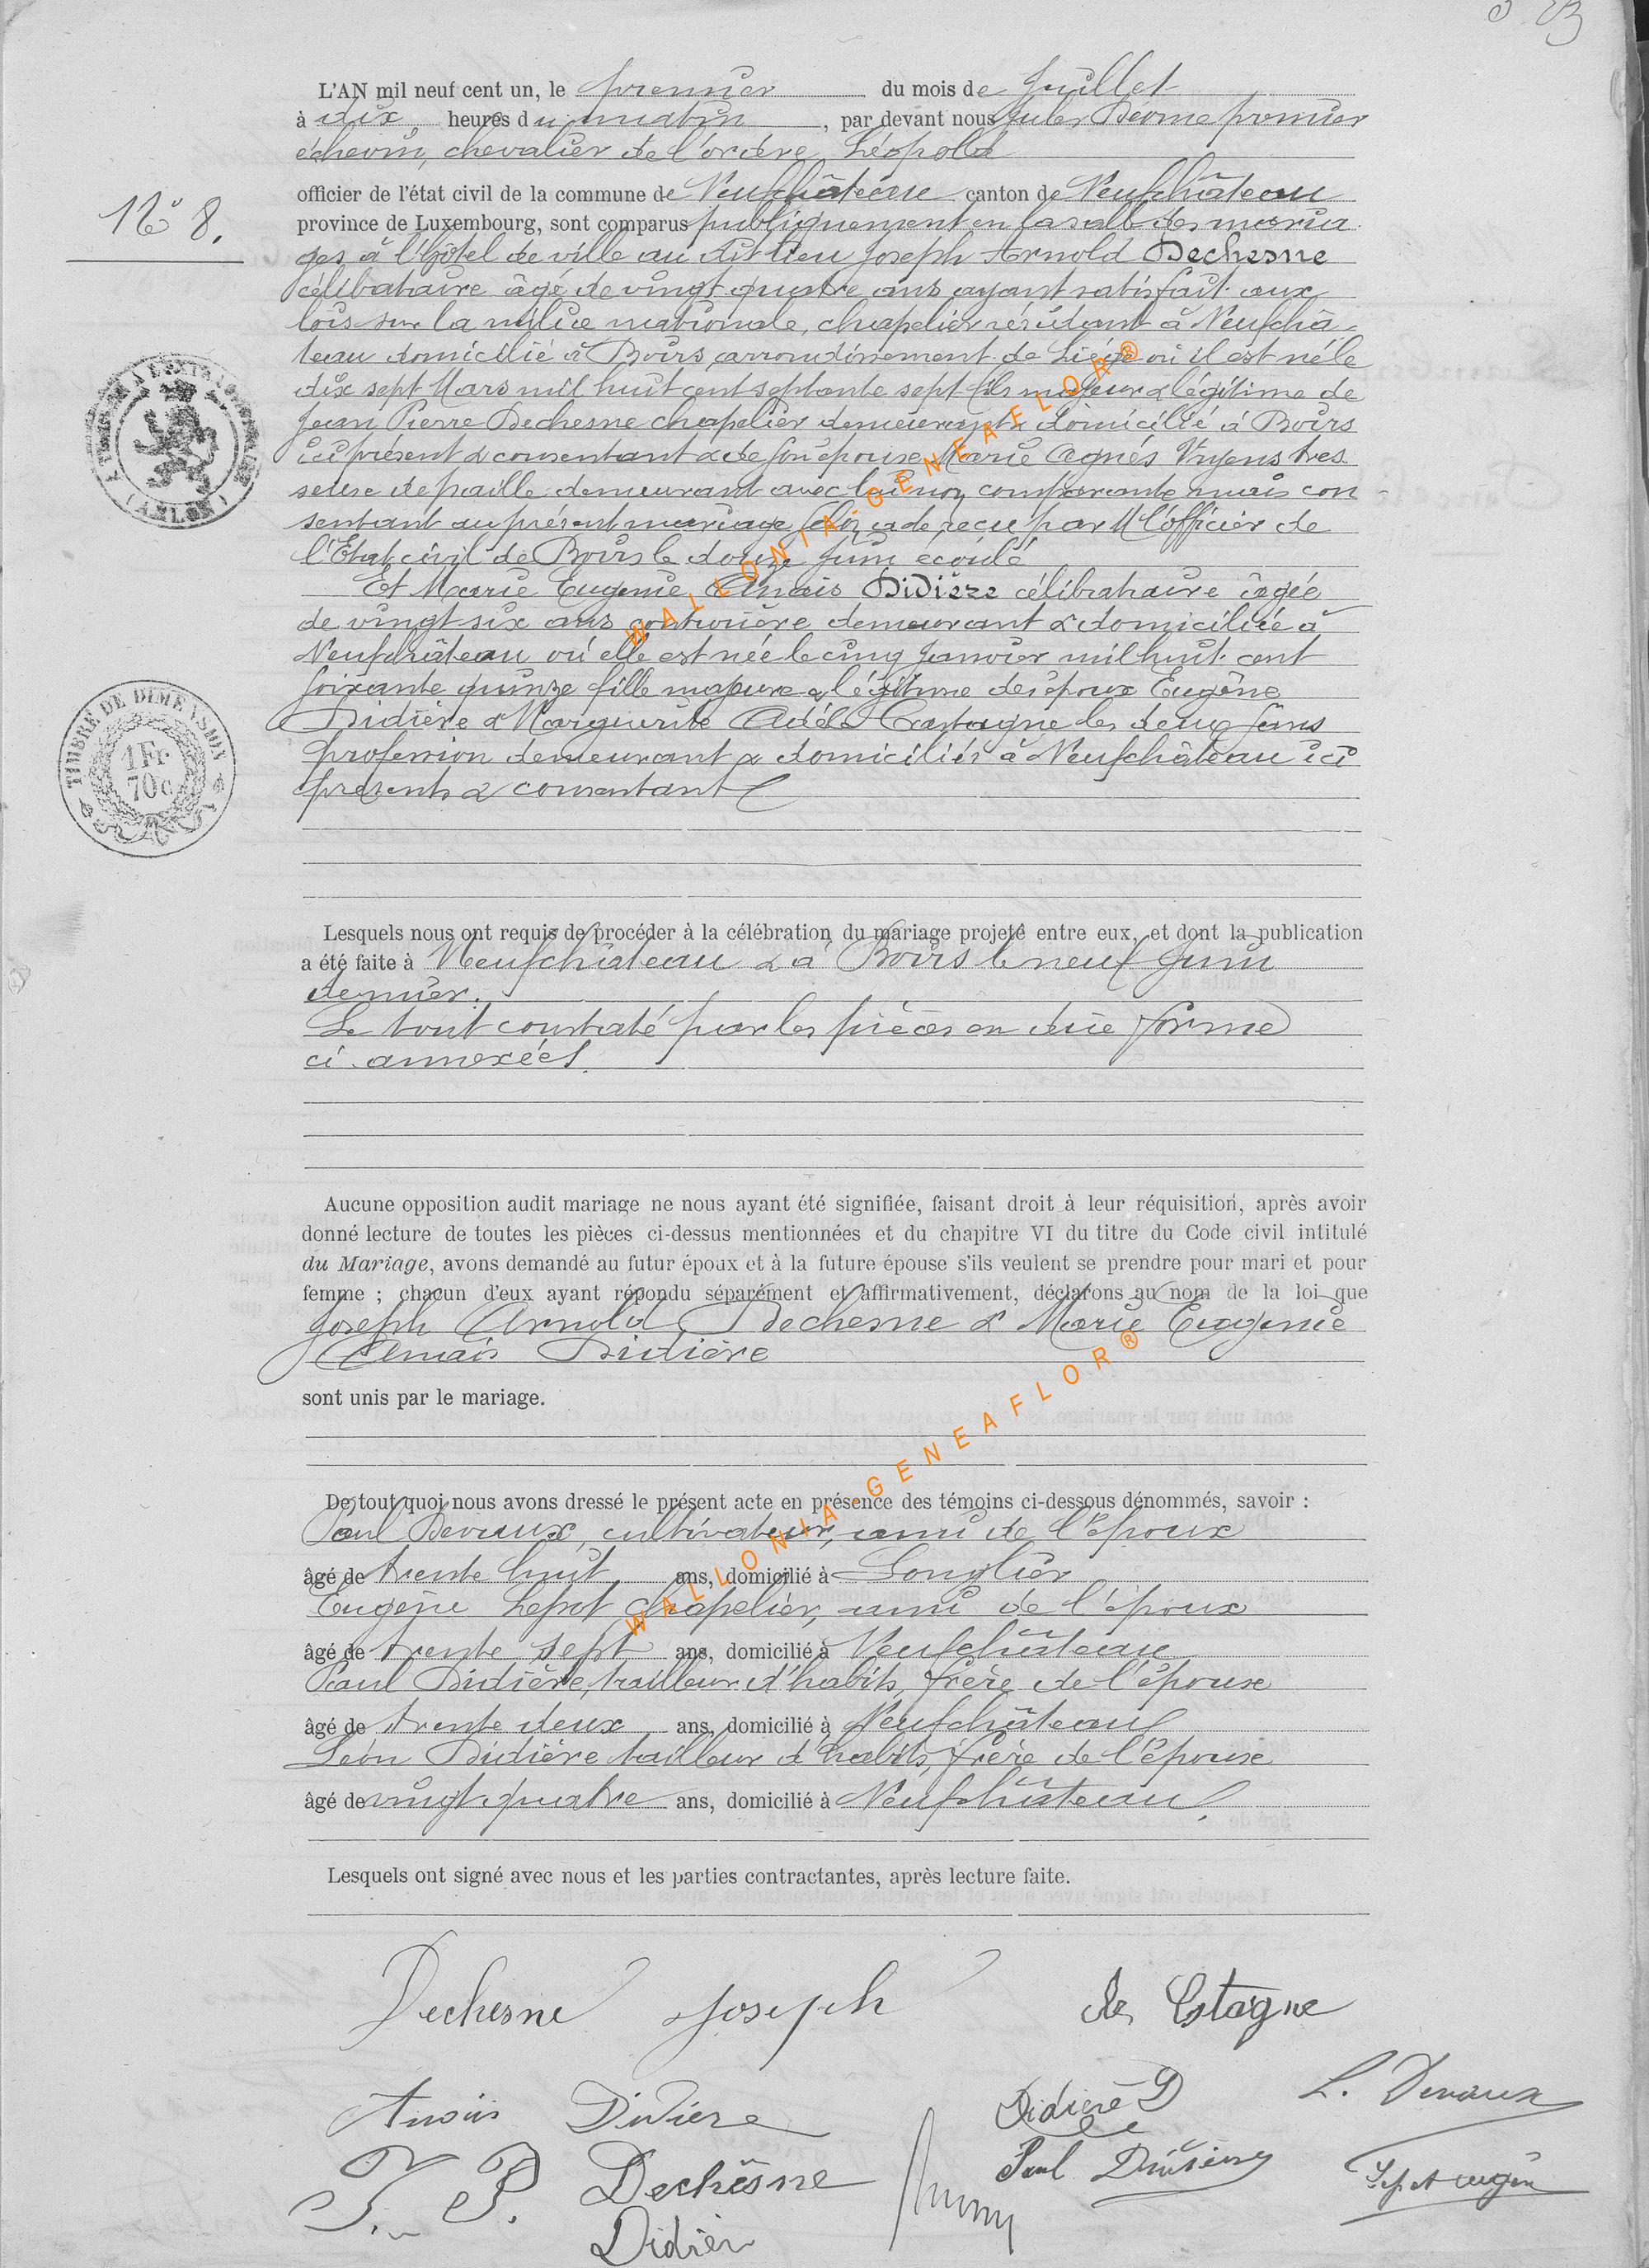 L'AN mil neuf cent un, le premier du mois de Juillet
à dix heures du matin, par devant nous Jules Déome premier
échevin, chevalier de l'ordre Léopold
officier de l'état civil de la commune de Neufchâteau canton de Neufchâteau
N° 8.
province de Luxembourg, sont comparus publiquement en la salle des maria
ges à l'hôtel de ville au dit lieu Joseph Arnold Dechesne
célibataire âgé de vingt quatre ans ayant satisfait aux
lois sur la milice nationale, chapelier résidant à Neufchâ-
teau domicilié à Boirs, arrondissement de Liége où il est né le
dix sept Mars mil huit cent septante sept fils majeur & légitime de
Jean Pierre Dechesne chapelier demeurant & domicilié à Boirs
ici présent & consentant & de son épouse Marie Agnés tres
seuse de paille demeurant avec lui non comparante mais con-
sentant au présent mariage selon acte reçu par M l'officier de
l'Etat civil de Boirs le douze Juin écoulé
Et Marie Eugenie Anais Didière célibataire âgée
de vingt six ans couturière demeurant & domiciliée à
Neufchâteau où elle est née le cinq Janvier mil huit cent
soixante quinze fille majeure & légitime des époux Eugène
Didière & Marguerite Adèle Castagne les deux sans
profession demeurant & domiciliés à Neufchâteau ici
présents & consentant
TIMBRE DE DIMENSION
1 Fr
70 c
Lesquels nous ont requis de procéder à la célébration du mariage projeté entre eux, et dont la publication
a été faite à Neufchâteau & à Boirs le neuf Juin
dernier.
Le tout constaté par les pièces en due forme
ci annexées.
Aucune opposition audit mariage ne nous ayant été signifiée, faisant droit à leur réquisition, après avoir
donné lecture de toutes les pièces ci-dessus mentionnées et du chapitre VI du titre du Code civil intitulé
du Mariage, avons demandé au futur époux et à la future épouse s'ils veulent se prendre pour mari et pour
femme ; chacun d'eux ayant répondu séparément et affirmativement, déclarons au nom de la loi que
Joseph Arnold Dechesne & Marie Eugenie
Anais Didière
sont unis par le mariage.
De tout quoi nous avons dressé le présent acte en présence des témoins ci-dessous dénommés, savoir :
Paul Devaux, cultivateur, ami de l'époux
âgé de trente huit ans, domicilié à Longlier
Eugène Lepot chapelier, ami de l'époux
âgé de trente sept ans, domicilié à Neufchâteau
Paul Didière, tailleur d'habits, frère de l'épouse
âgé de trente deux ans, domicilié à Neufchâteau
Léon Didière tailleur d'habits, frère de l'épouse
âgé de vingt quatre ans, domicilié à Neufchâteau.
Lesquels ont signé avec nous et les parties contractantes, après lecture faite.
Dechesne Joseph
Anais Didiere
Didière D
L. Devaux
J. P. Dechêsne
Paul Didière
Didièr
WALLONIA-GENEAFLOR®
WALLONIA-GENEAFLOR®